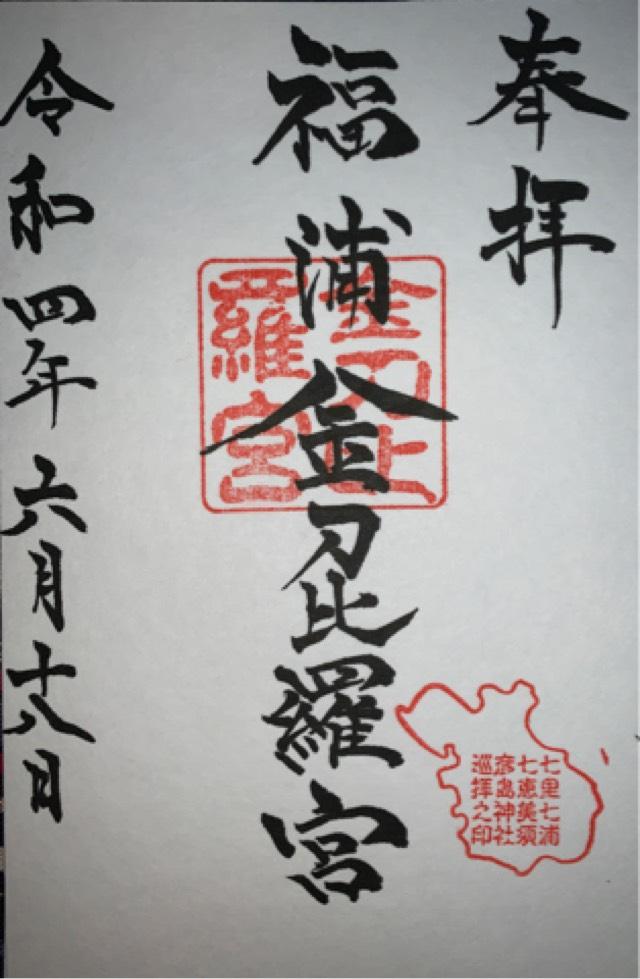 奉拝
福浦金刀比羅宮
金刀比
羅宮
七里七浦
七恵美須
彦島神社
巡拝之印
令和四年六月十八日